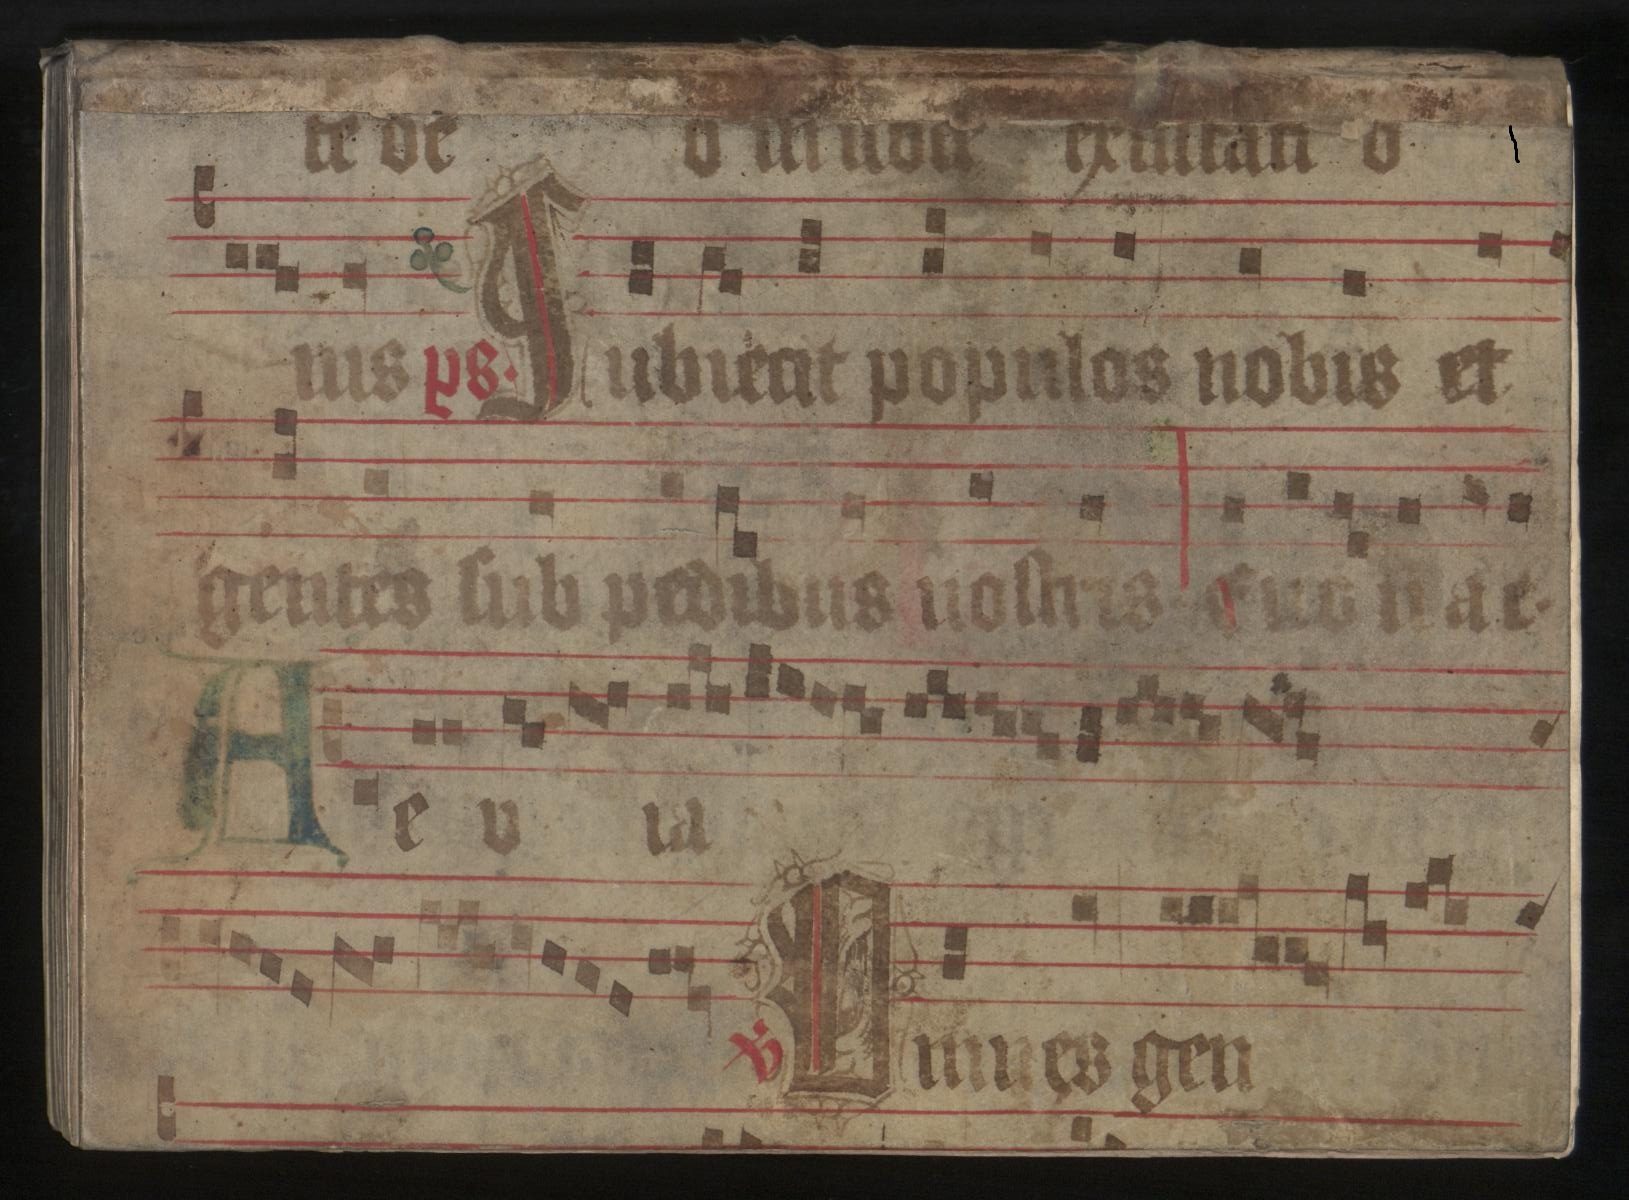 te de o in uoce exultati o
nis ps. Subiecit populos nobis et
gentes sub pedibus nostris. Euouae.
A e u ia
v Omnes gen